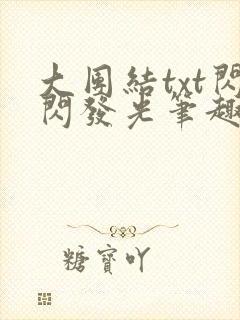 大团結txt閃
閃發光筆趣
糖寶吖